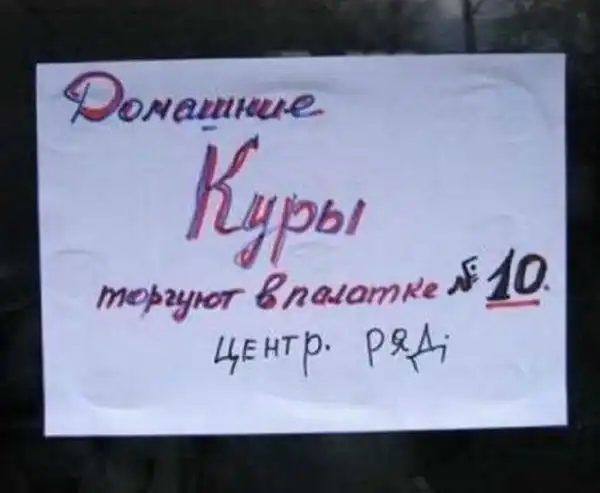 Домашние
Куры
торгуют в палатке № 10.
ЦЕНТР. РЯД.